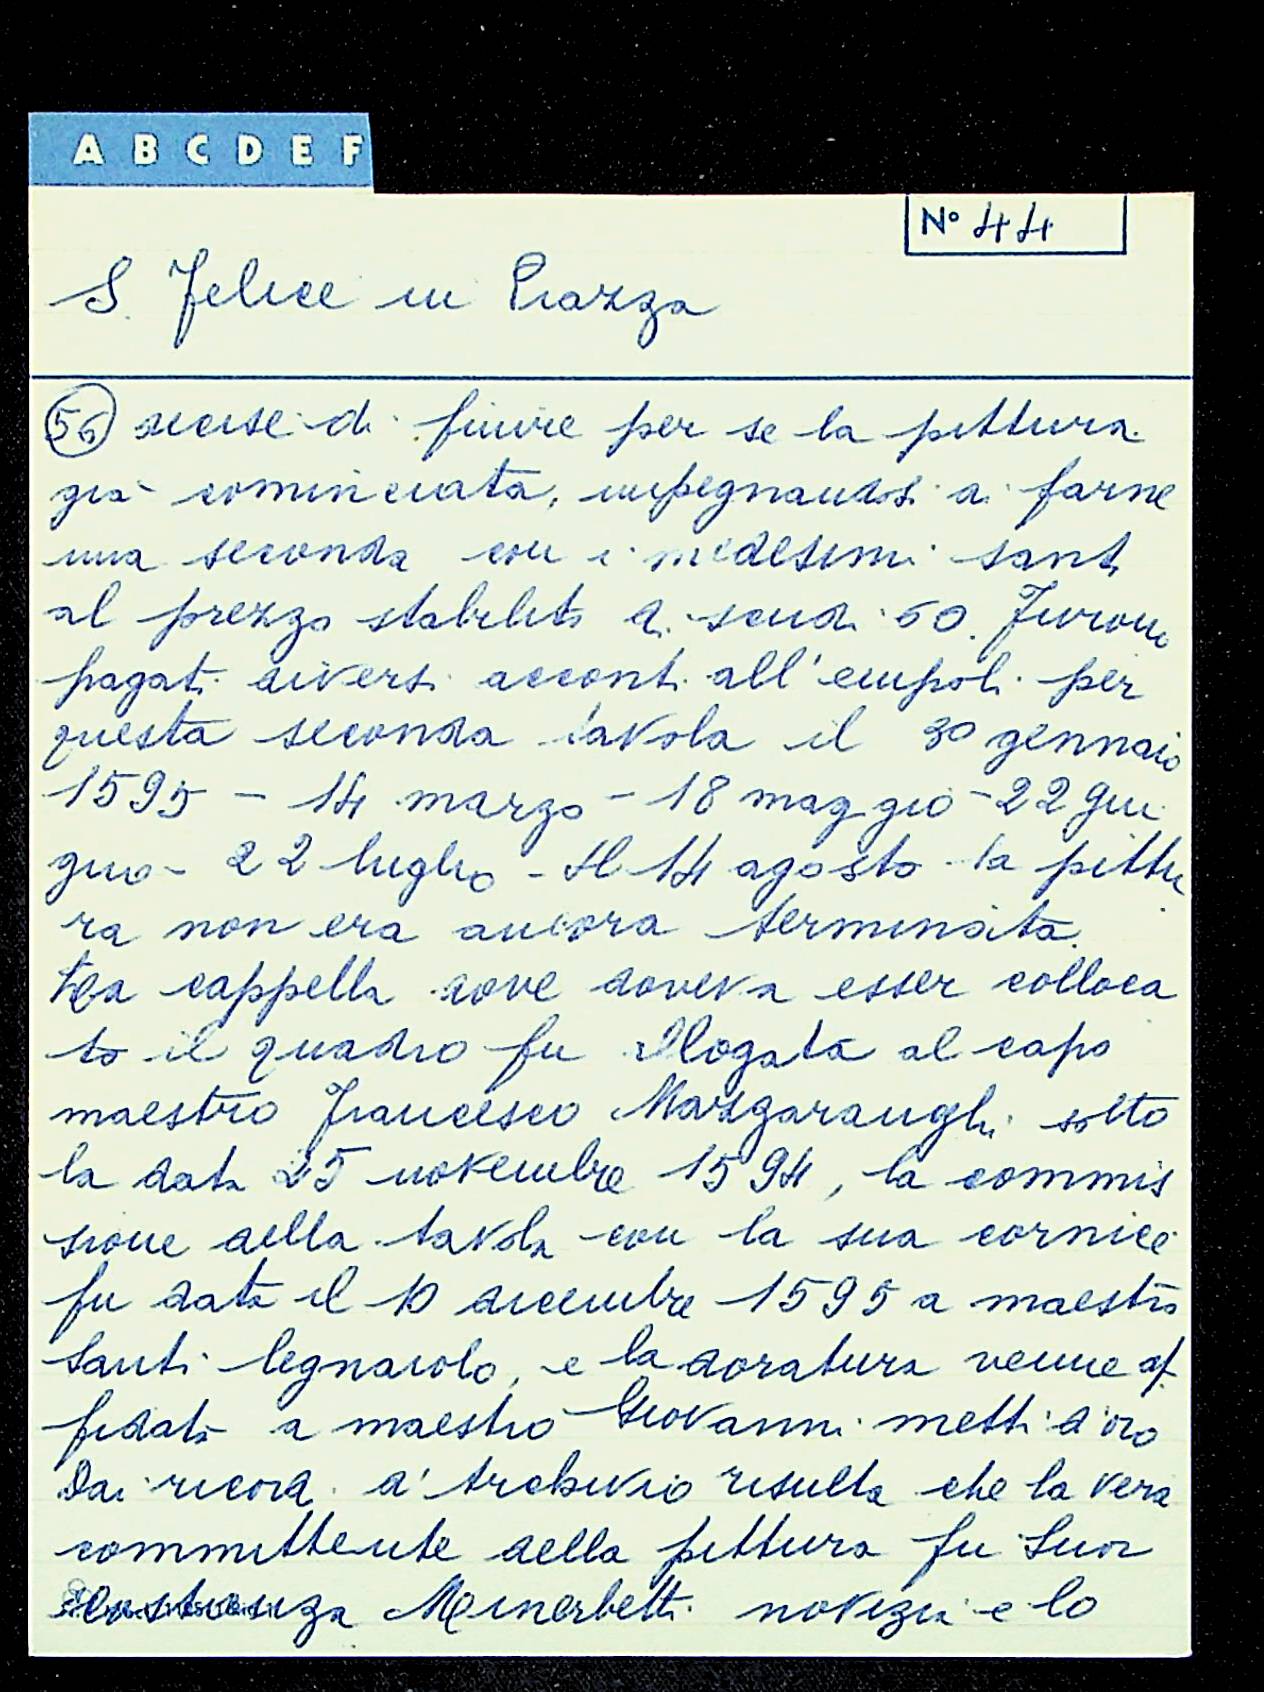 A B C D E F
N° 44
S. Felice in Piazza
56 decise di finire per se la pittura
già cominciata, impegnandosi a farne
una seconda con i medesimi santi
al prezzo stabilito di scudi 60. Furono
pagati diversi acconti all'empoli per
questa seconda tavola il 30 gennaio
1595 - 14 marzo - 18 maggio - 22 giu
gno - 22 luglio - Il 14 agosto la pittu
ra non era ancora terminata.
La cappella dove doveva esser colloca
to il quadro fu allogata al capo
maestro Francesco sotto
la data 25 novembre 1594, la commis
sione della tavola con la sua cornice
fu data il 10 dicembre 1595 a maestro
Santi legnaiolo, e la doratura venne af
fidata a maestro Giovanni metti d'oro
Dai ricordi d'archivio risulta che la vera
committente della pittura fu Suor
Minerbetti novizia e lo